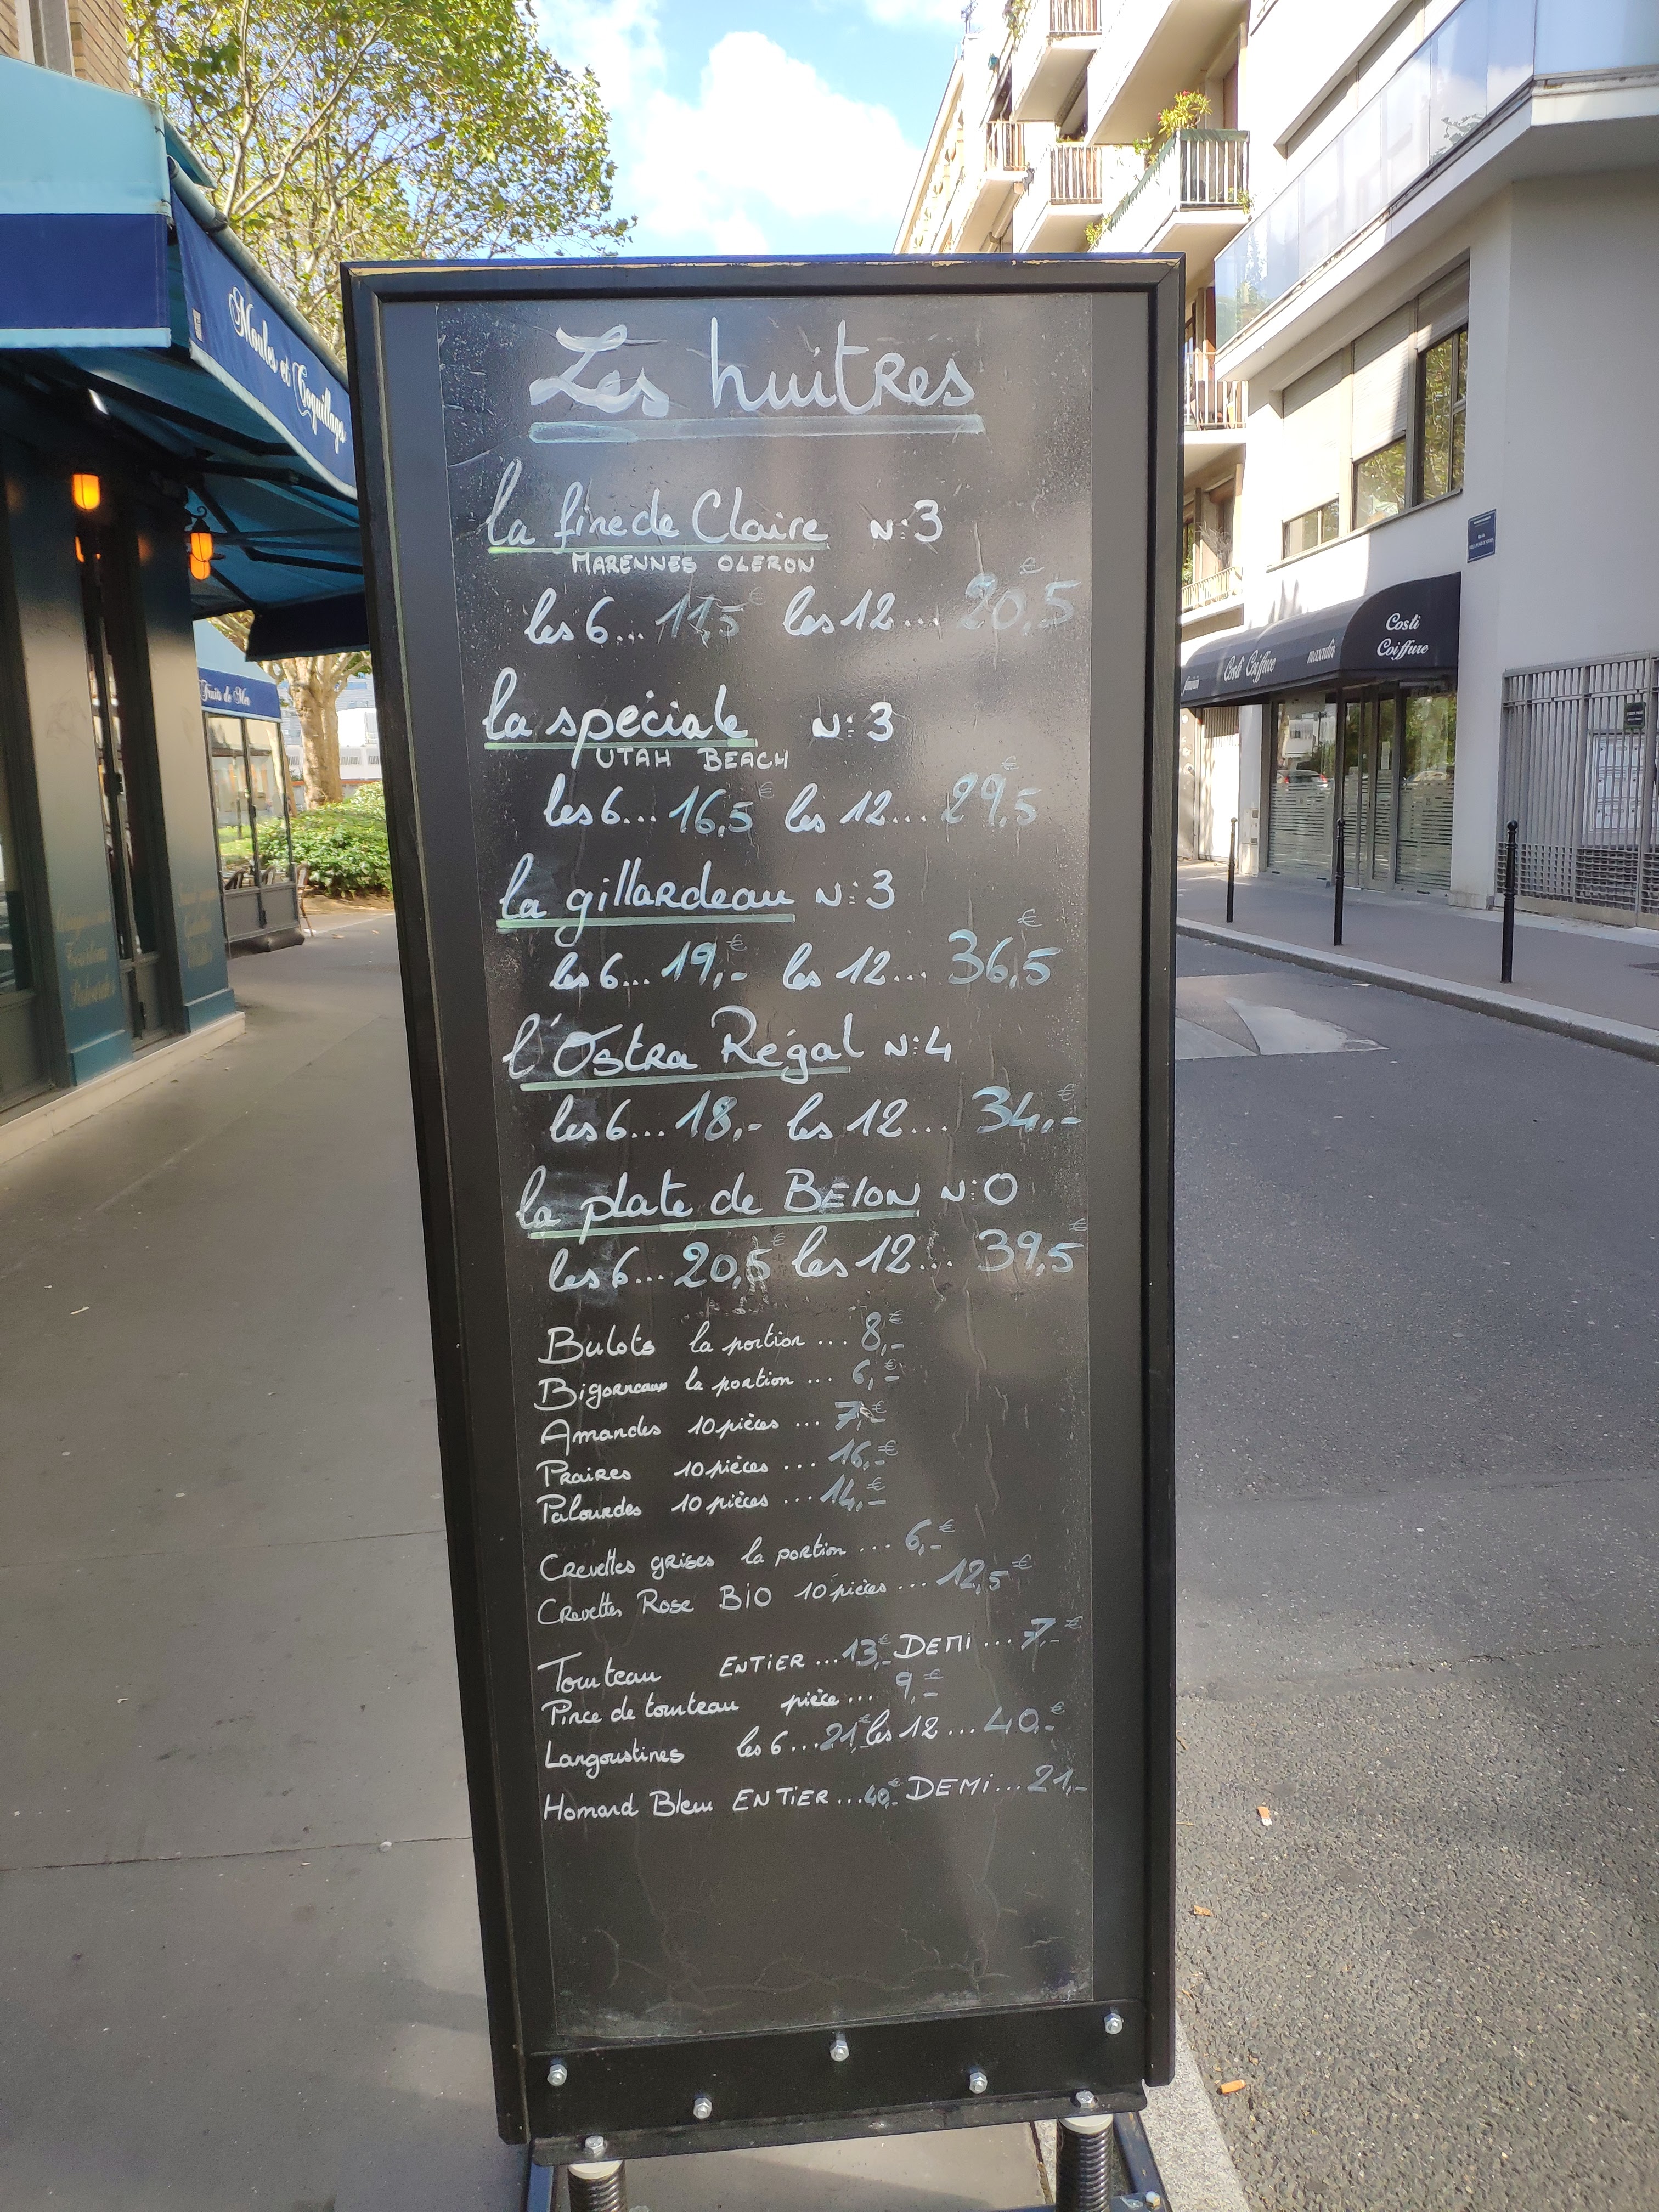 Les huitres
la fine de Claire N:3
MARENNES OLERON
les 6... 11,5€ les 12... 20,5€
la spéciale N:3
UTAH BEACH
les 6... 16,5€ les 12... 29,5€
la gillardeau N:3
les 6... 19,-€ les 12... 36,5€
l'Ostra Régal N:4
les 6... 18,- les 12... 34,-€
la plate de BELON N:0
les 6... 20,5€ les 12... 39,5€
Bulots la portion ... 8,-€
Bigorneaux la portion ... 6,-€
Amandes 10 pièces ... 7,-€
Praires 10 pièces ... 16,-€
Palourdes 10 pièces ... 14,-€
Crevettes grises la portion ... 6,-€
Crevettes Rose BIO 10 pièces ... 12,5€
Tourteau ENTIER ... 13,-€ DEMI ... 7,-€
Pince de tourteau pièce ... 9,-€
Langoustines les 6 ... 21,€ les 12 ... 40,-€
Homard Bleu ENTIER ... 40,-€ DEMI ... 21,-
Moules et Coquillages
Fruits de Mer
Costi
Coiffure
Costi Coiffure masculin